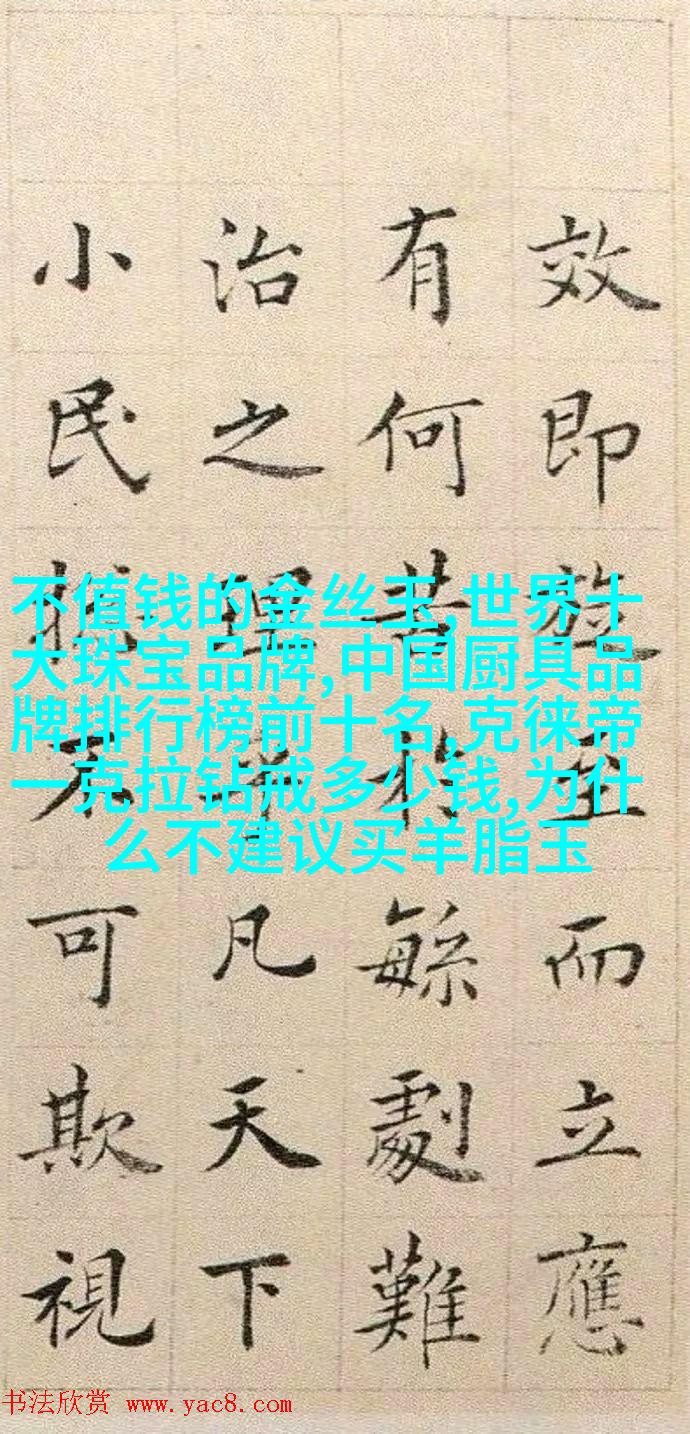 效即旋至而立應
有何苦於緐劇難
治之理凡天下
小民不可欺視
不值钱的金丝玉,世界十
大珠宝品牌,中国厨具品
牌排行榜前十名,克徕帝
一克拉钻戒多少钱,为什
么不建议买羊脂玉
书法欣赏 www.yac8.com